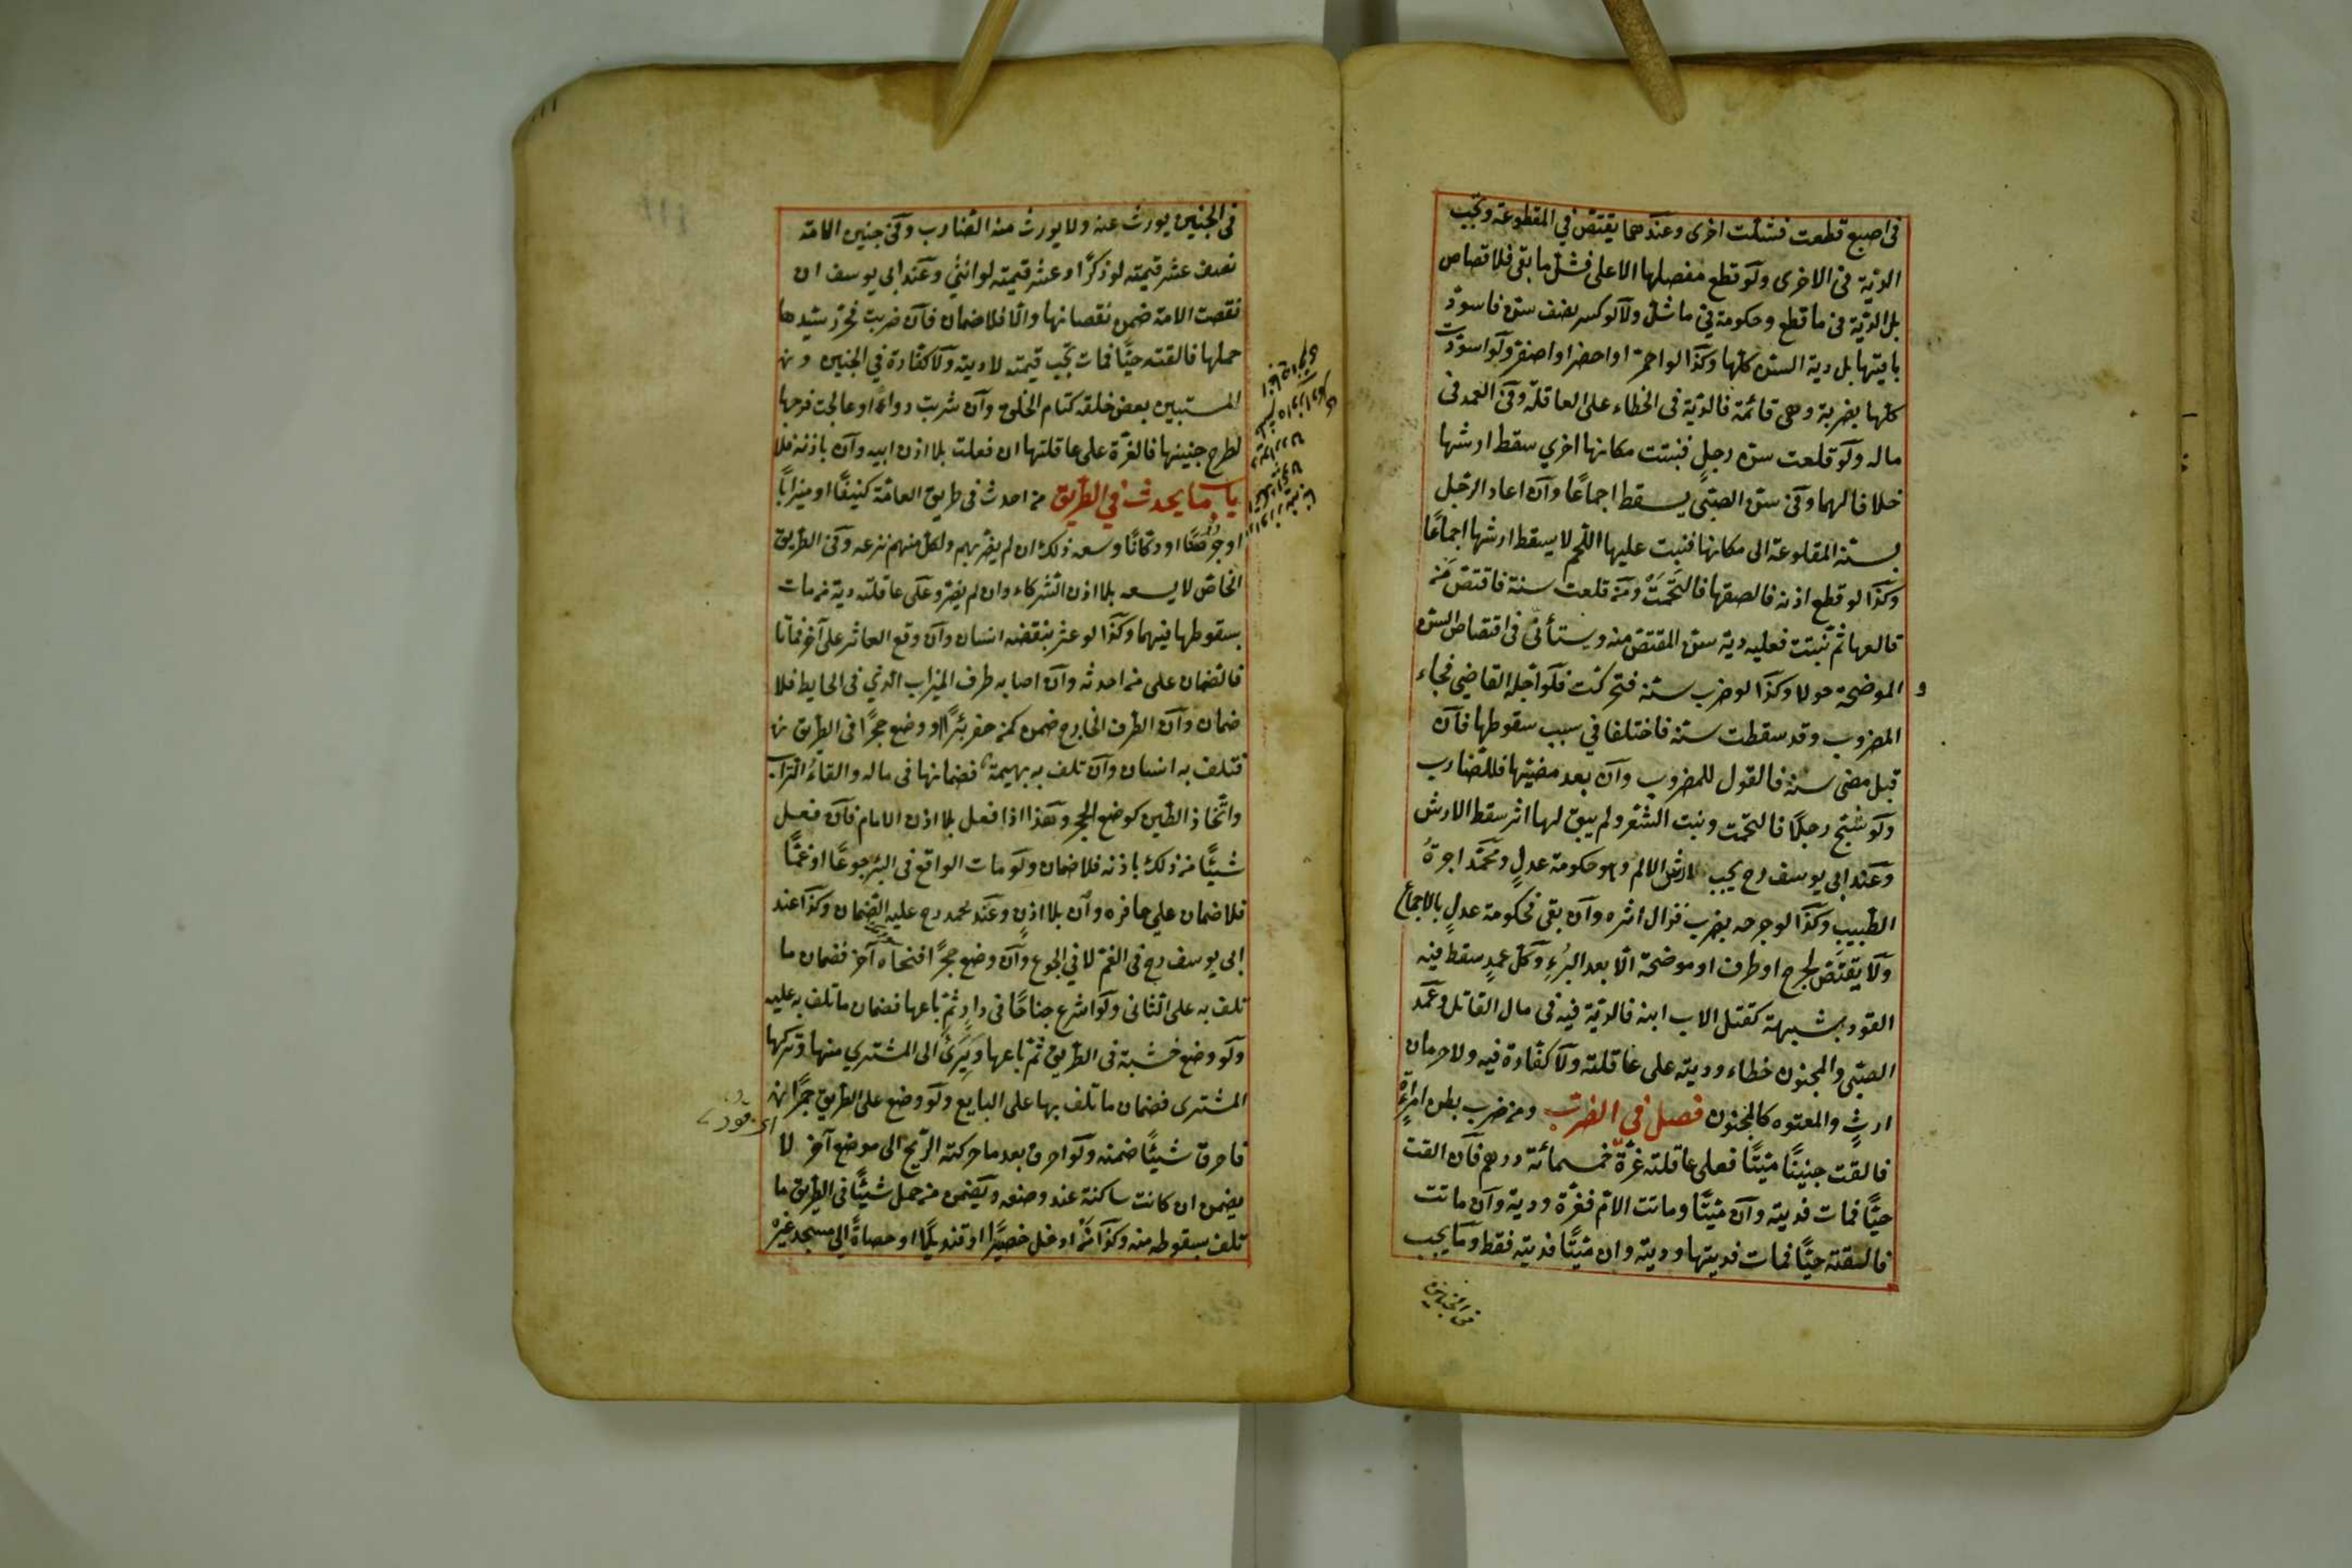 فى اصبع قطعت فشلت اخرى وعندهما يقتص في المقطوعة وتجب
الدية فى الاخرى ولو قطع مفصلها الاعلى فشل ما بقى فلا قصاص
بل الدية فى ما قطع وحكومة في ما شل ولا لو كسر نصف سن فاسود
باقيتها بل دية السن كلها وكذا لو احمر او اخضر او اصفر ولو اسودت
كلها بضربة وهى قائمة فالدية فى الخطاء على العاقلة وفى العمد فى
ماله ولو قلعت سن رجل فنبتت مكانها اخري سقط ارشها
خلافا لهما وفى سن الصبى يسقط اجماعا وان اعاد الرجل
سنه المقلوعة الى مكانها فنبت عليها اللحم لا يسقط ارشها اجماعا
وكذا لو قطع اذنه فالصقها فالتحمت ومن قلعت سنة فاقتص من
قالعها ثم نبتت فعليه دية سن المقتص منه ويستأنى فى اقتصاص السن
و الموضحة حولا وكذا لو ضرب سنه فتحركت فلو اجله القاضي فجاء
المضروب وقد سقطت سنه فاختلفا في سبب سقوطها فان
قبل مضى سنة فالقول للمضروب وان بعد مضيها فللضارب
ولو شج رجلا فالتحمت ونبت الشعر ولم يبق لها اثر سقط الارش
وعند ابى يوسف رح يجب ارش الالم وهو حكومة عدل ومحمد اجرة
الطبيب وكذا لو جرحه بضرب فزال اثره وان بقى فحكومة عدل بالاجماع
ولا يقتص لجرح او طرف او موضحة الا بعد البرء وكل عمد سقط فيه
القود بشبهة كقتل الاب ابنه فالدية فيه فى مال القاتل وعمد
الصبى والمجنون خطاء وديته على عاقلته ولا كفارة فيه ولا حرمان
ارث والمعتوه كالمجنون فصل في الضرب ومن ضرب بطن امرءة
فالقت جنينا ميتا فعلى عاقلته غرة خمسمائة درهم فان القت
حيا فمات فدية وان ميتا وماتت الام فغرة ودية وان ماتت
فالقته حيا فمات فديتها وديته وان ميتا فديته فقط وما يجب
فى الجنين يورث عنه ولا يورث منه الضارب وفى جنين الامة
نصف عشر قيمته لو ذكرا وعشر قيمته لو انثي وعند ابى يوسف ان
نقصت الامة ضمن نقصانها والا فلا ضمان فان ضربت فحرر سيدها
حملها فالقته حيا فمات تجب قيمته لا ديته ولا كفارة في الجنين
المستبين بعض خلقه كتام الخلق وان شربت دواء او عالجت فرجها
لطرح جنينها فالغرة على عاقلتها ان فعلت بلا اذن ابيه وان باذنه فلا
باب ما يحدث في الطريق من احدث فى طريق العامة كنيفا او ميزابا
او جرصنا او دكانا وسعه ذلك ان لم يضر بهم ولكل منهم نزعه وفى الطريق
الخاص لا يسعه بلا اذن الشركاء وان لم يضر وعلى عاقلته دية من مات
بسقوطها فيهما وكذا لو عثر بنقضه انسان وان وقع العاثر على آخر فماتا
فالضمان على من احدثه وان اصابه طرف الميزاب الذي فى الحايط فلا
ضمان وان الطرف الخارج ضمن كمن حفر بئرا او وضع حجرا فى الطريق
فتلف به انسان وان تلف به بهيمة فضمانها فى ماله والقاء التراب
واتخاذ الطين كوضع الحجر وهذا اذا فعل بلا اذن الامام فان فعل
شيئا من ذلك باذنه فلا ضمان ولو مات الواقع فى البئر جوعا او غما
فلا ضمان علي حافره وان بلا اذن وعند محمد رح عليه الضمان وكذا عند
ابى يوسف رح فى الغم لا في الجوع وان وضع حجرا فنحاه آخر فضمان ما
تلف به على الثانى ولو اشرع جناحا فى دار ثم باعها فضمان ما تلف به عليه
ولو وضع خشبة فى الطريق ثم باعها وبرئ الى المشترى منها وتركها
المشترى فضمان ما تلف بها على البايع ولو وضع على الطريق جمرا
فاحرق شيئا ضمنه ولو احرق بعد ما حركته الريح الى موضع آخر لا
يضمن ان كانت ساكنة عند وضعه ويضمن من حمل شيئا فى الطريق ما
تلف بسقوطه منه وكذا من ادخل حصيرا او قنديلا او حصاة الى مسجد غيره